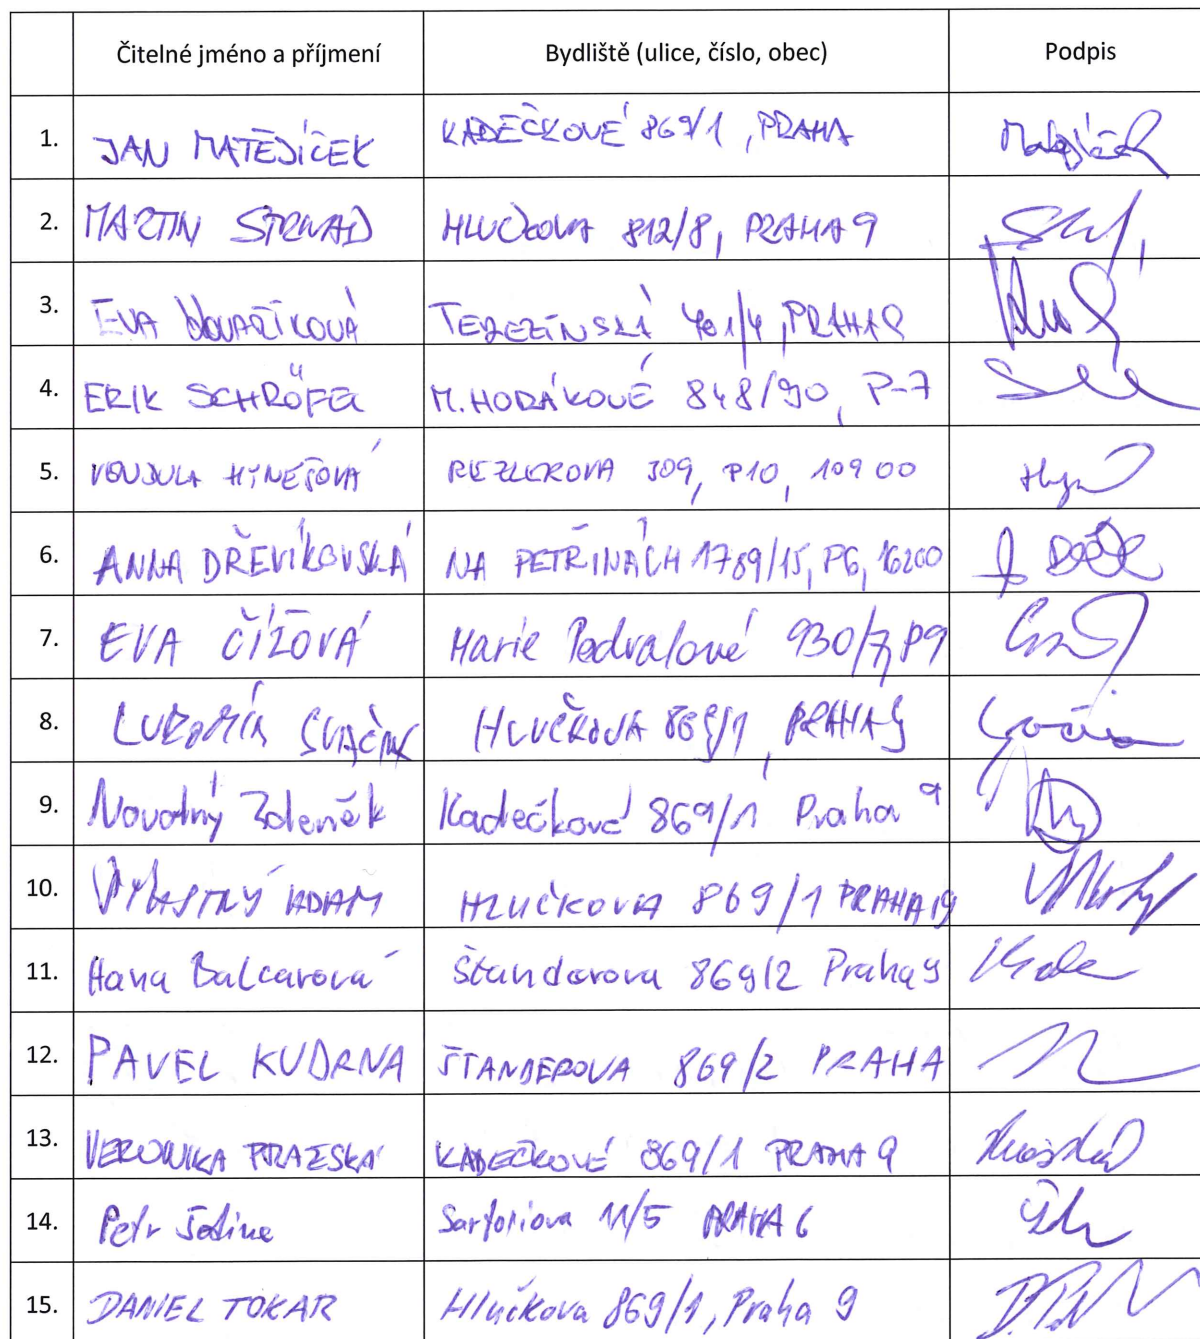 Čitelné jméno a příjmení Bydliště (ulice, číslo, obec) Podpis
1. JAN MATĚJÍČEK KADEČKOVÉ 869/1, PRAHA
2. MARTIN STRNAD HLUČKOVA 812/8, PRAHA 9
3. EVA KOVAŘÍKOVÁ TEREZÍNSKÁ PRAHA 9
4. ERIK M. HORÁKOVÉ 848/90, P-7
5. HYNEŠOVÁ REZLEROVA 309, P10, 109 00
6. ANNA DŘEVÍKOVSKÁ NA PETŘINÁCH 1789/15, P6, 16200
7. EVA ČÍŽOVÁ Marie Podvalové 930/7, P9
8. LUBOMÍR SVAČINA HLUČKOVA 869/1, PRAHA 9
9. Novotný Zdeněk Kadečkové 869/1 Praha 9
10. ADAM HLUČKOVA 869/1 PRAHA 19
11. Hana Balcarová Štandarova 869/2 Praha 9
12. PAVEL KUDRNA ŠTANDEROVA 869/2 PRAHA
13. VERONIKA PRAŽSKÁ KADEČKOVÉ 869/1 PRAHA 9
14. Petr Sartoriova 11/5 PRAHA 6
15. DANIEL TOKAR Hlučkova 869/1, Praha 9